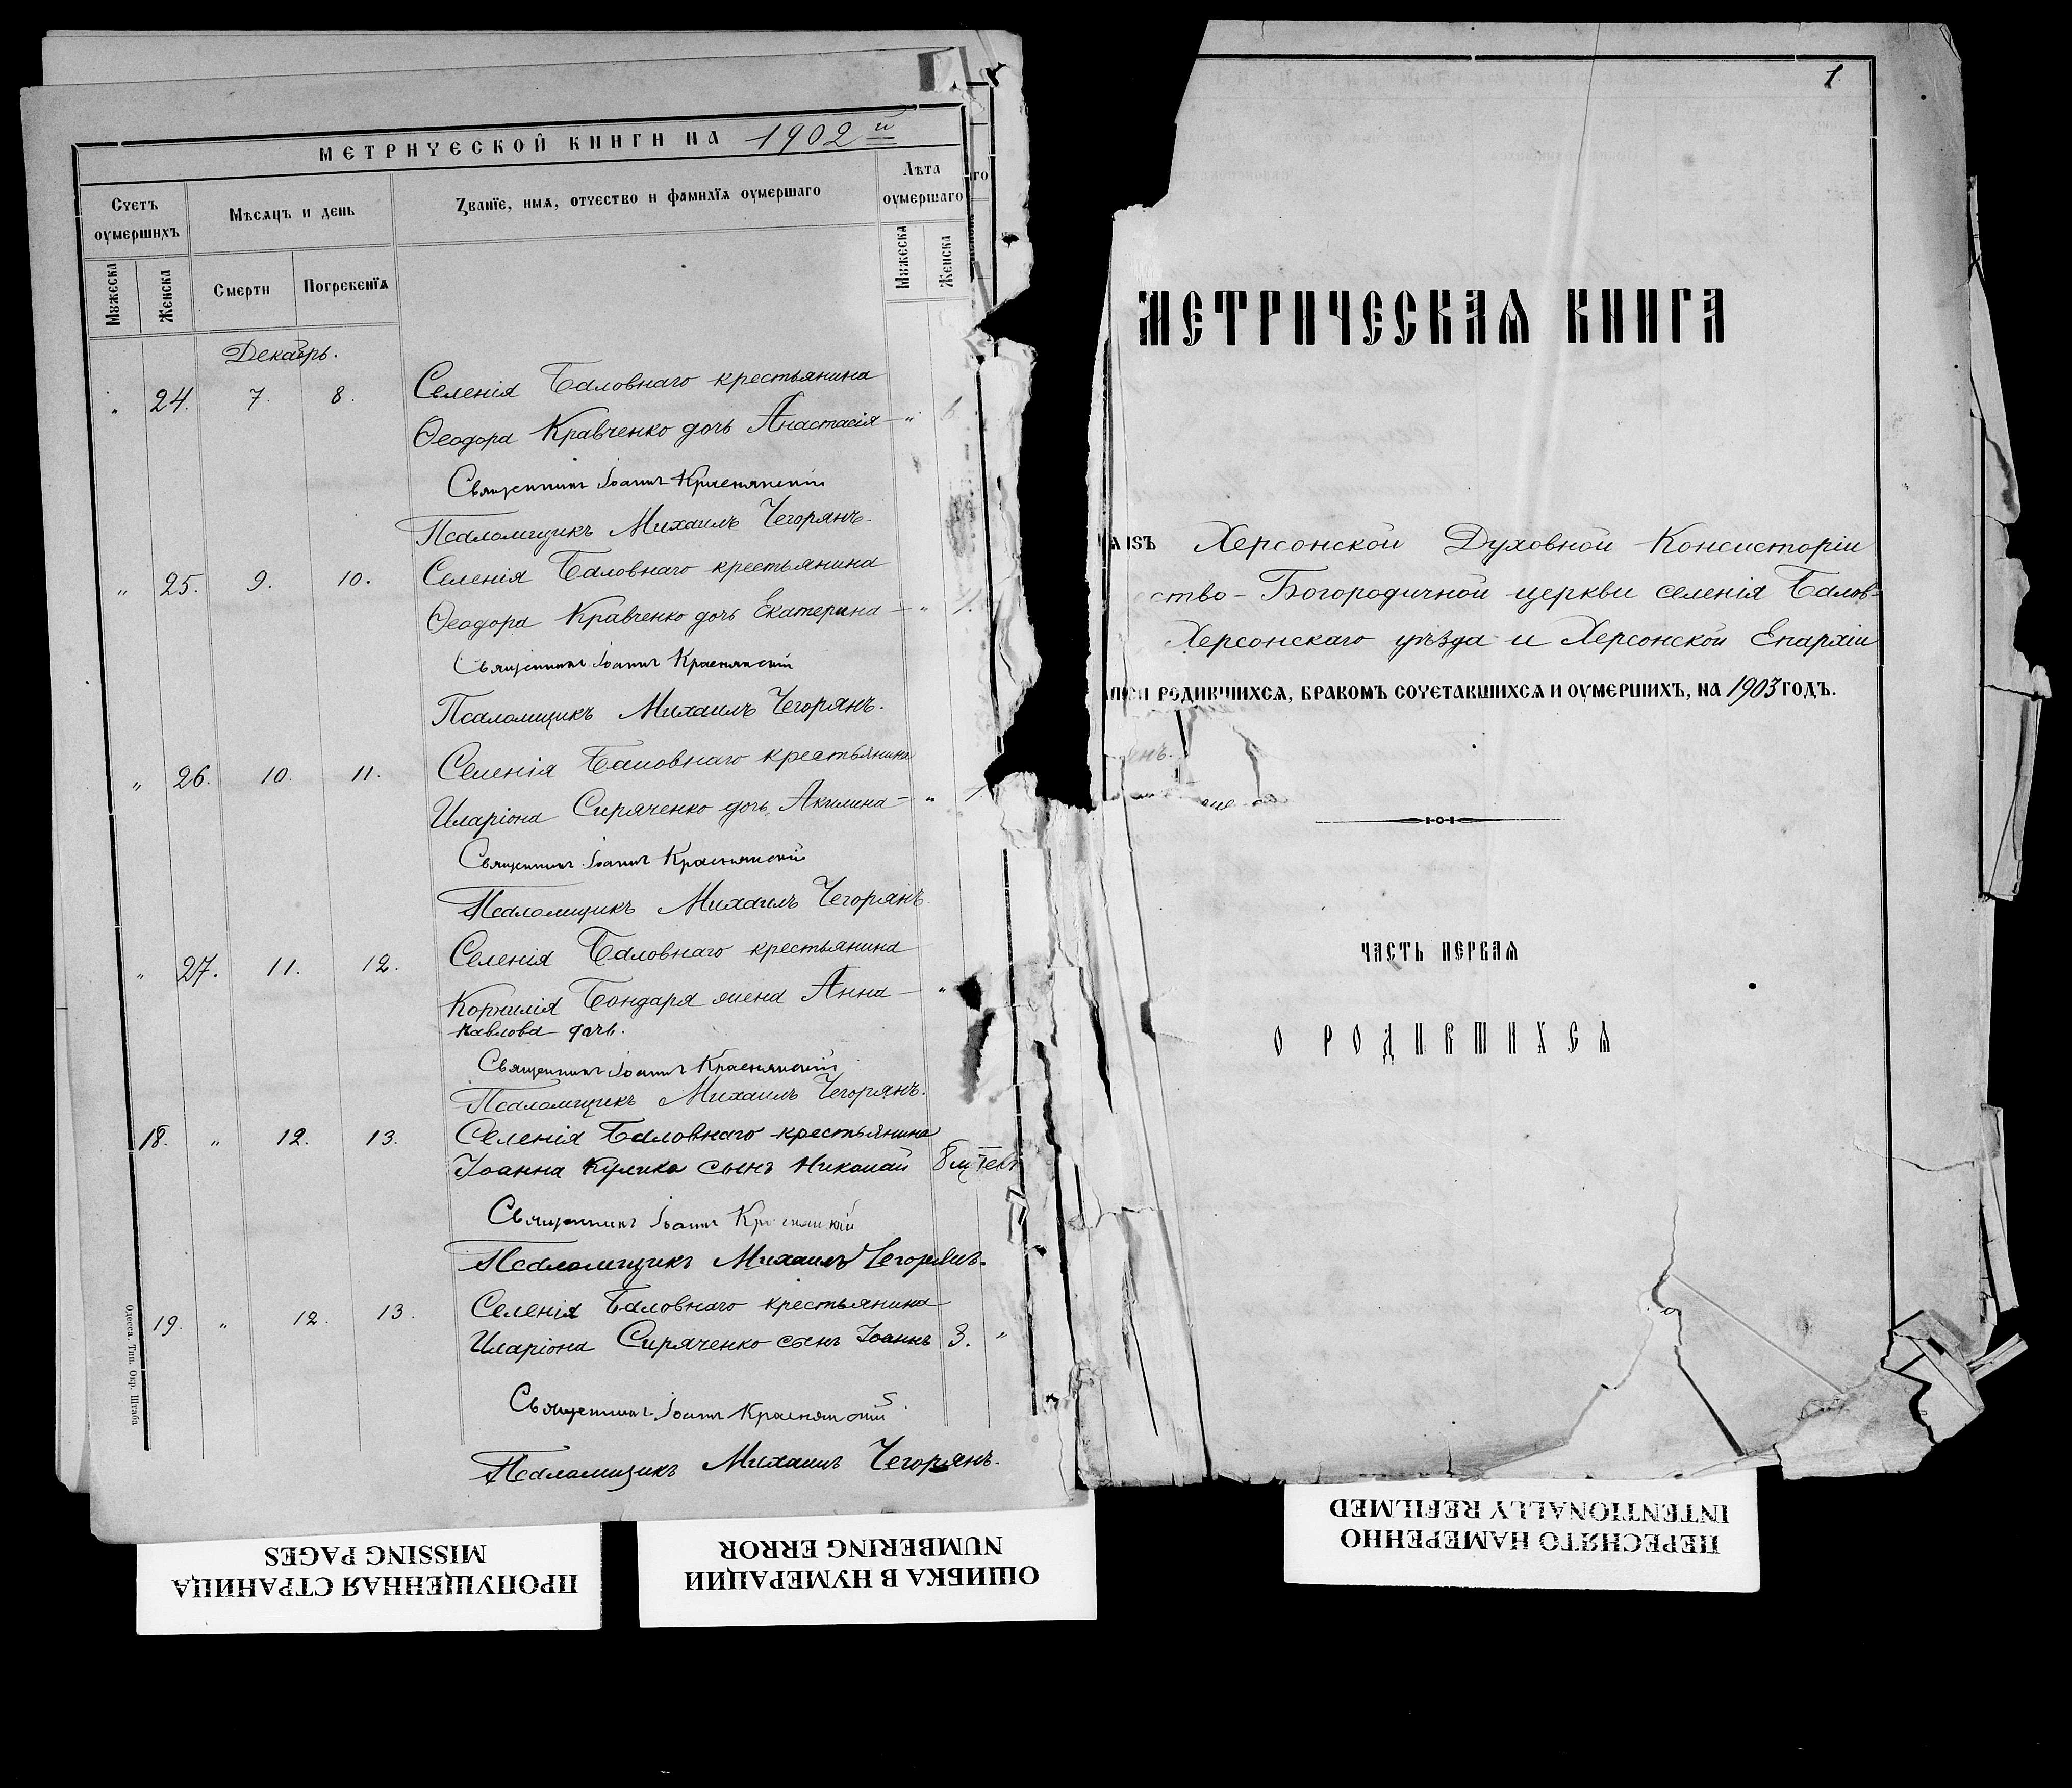 МЕТРИЧЕСКОЙ КНИГИ НА 1902 й
Счетъ оумершихъ
Мѣсяцъ и день
Званїе, имя, отчество и фамилїя оумершаго
Лѣта оумершаго
го
Мужеска
Женска
Смерти
Погребенїя
Мужеска
Женска
Декабрь.
" 24. 7. 8. Селенія Баловнаго крестьянина
Ѳеодора Кравченко дочь Анастасія — " 6
Священникъ Іоаннъ Краснянскій
Псаломщикъ Михаилъ Чегорянъ.
" 25. 9. 10. Селенія Баловнаго крестьянина
Ѳеодора Кравченко дочь Екатерина — " 1.
Священникъ Іоаннъ Краснянскій
Псаломщикъ Михаилъ Чегорянъ.
" 26. 10. 11. Селенія Баловнаго крестьянина
Иларіона Сиряченко дочь Акилина — "
Священникъ Іоаннъ Краснянскій
Псаломщикъ Михаилъ Чегорянъ
" 27. 11. 12. Селенія Баловнаго крестьянина
Корнилія Бондаря жена Анна — "
Павлова дочь.
Священникъ Іоаннъ Краснянскій
Псаломщикъ Михаилъ Чегорянъ.
18. " 12. 13. Селенія Баловнаго крестьянина
Іоанна Кулика сынъ Николай 8 м
Священникъ Іоаннъ Краснянскій
Псаломщикъ Михаилъ Чегорянъ.
19. " 12. 13. Селенія Баловнаго крестьянина
Иларіона Сиряченко сынъ Іоаннъ 3. "
Священникъ Іоаннъ Краснянскій
Псаломщикъ Михаилъ Чегорянъ.
Одесса. Тип. Окр. Штаба
1
МЕТРИЧЕСКАЯ КНИГА
изъ Херсонской Духовной Консисторіи
ство-Богородичной церкви селенія Балов-
Херсонскаго уѣзда и Херсонской Епархіи
родившихся, бракомъ сочетавшихся и оумершихъ, на 1903 годъ.
ЧАСТЬ ПЕРВАЯ
О РОДИВШИХСЯ
ПРОПУЩЕННАЯ СТРАНИЦА
MISSING PAGES
ОШИБКА В НУМЕРАЦИИ
NUMBERING ERROR
ПЕРЕСНЯТО НАМЕРЕННО
INTENTIONALLY REFILMED